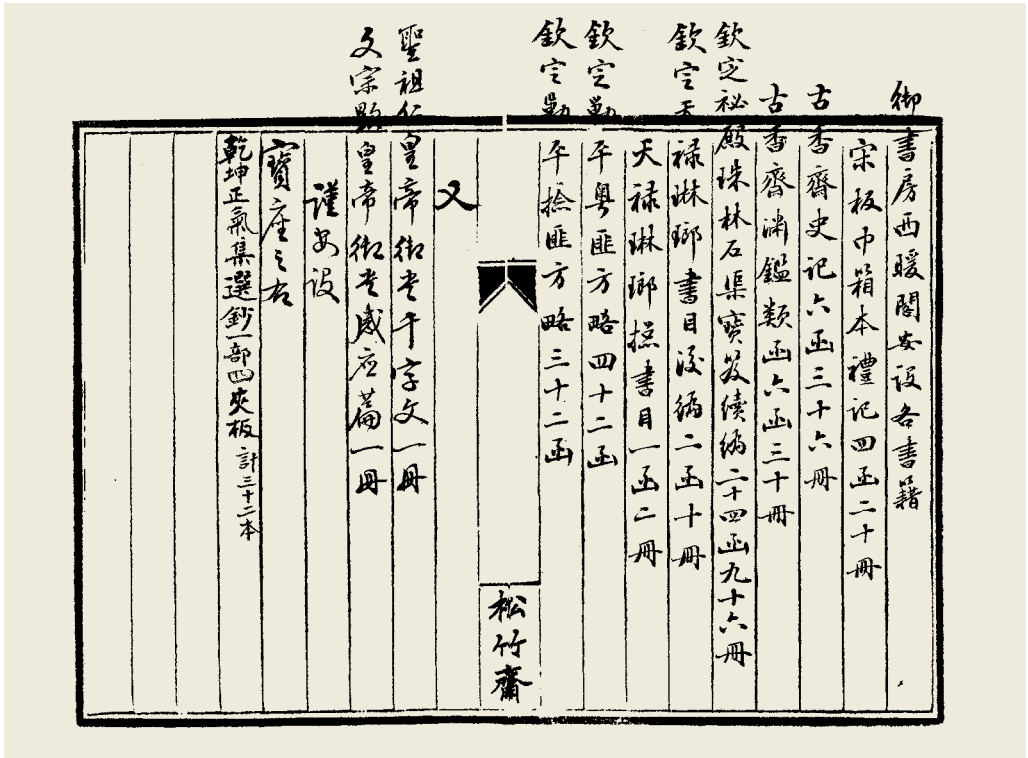 御書房西暖閣安設各書籍
宋板巾箱本禮記四函二十冊
古香齋史記六函三十六冊
古香齋淵鑑類函六函三十冊
欽定祕殿珠林石渠寶笈續編二十四函九十六冊
欽定天祿琳瑯書目後編二函十冊
天祿琳瑯摠書目一函二冊
欽定勦平粵匪方略四十二函
欽定勦平捻匪方略三十二函
松竹齋
又
聖祖仁皇帝御書千字文一冊
文宗顯皇帝御書感應篇一冊
謹安設
寶座之右
乾坤正氣集選鈔一部四夾板計三十二本